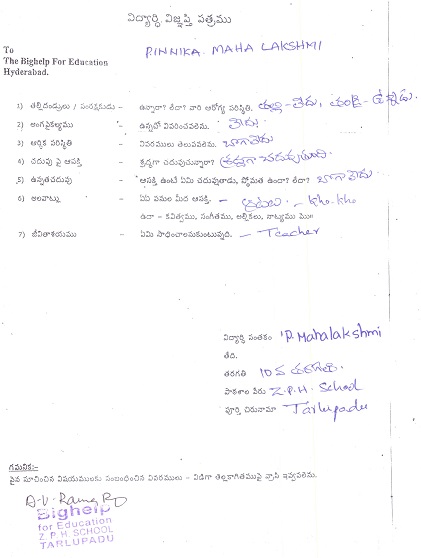 విద్యార్థి విజ్ఞప్తి పత్రము
To
The Bighelp For Education
Hyderabad.
PINNIKA MAHA LAKSHMI
1) తల్లిదండ్రులు / సంరక్షకుడు - ఉన్నారా? లేదా? వారి ఆరోగ్య పరిస్థితి. తల్లి - లేదు, తండ్రి - ఉన్నాడు.
2) అంగవైకల్యము - ఉన్నచో వివరించవలెను. లేదు.
3) ఆర్థిక పరిస్థితి - వివరములు తెలుపవలెను. బాగాలేదు
4) చదువు పై ఆసక్తి - శ్రద్ధగా చదువుచున్నారా? శ్రద్ధగా చదువుతుంది.
5) ఉన్నతచదువు - ఆసక్తి ఉంటే ఏమి చదువుతాడు, స్థోమత ఉందా? లేదా? బాగాలేదు.
6) అలవాట్లు - ఏ ఏ పనుల మీద ఆసక్తి. - ఆటలు - kho-kho
ఉదా - కవిత్వము, సంగీతము, అల్లికలు, నాట్యము మొ॥
7) జీవితాశయము - ఏమి సాధించాలనుకుంటున్నది. - Teacher
విద్యార్థి సంతకం P. Mahalakshmi
తేది.
తరగతి 10వ తరగతి.
పాఠశాల పేరు Z.P.H. School
పూర్తి చిరునామా Tarlupadu
గమనిక:-
పైన సూచించిన విషయములకు సంబంధించిన వివరములు - విడిగా తెల్లకాగితముపై వ్రాసి ఇవ్వవలెను.
Bighelp
for Education
Z. P. H. SCHOOL
TARLUPADU